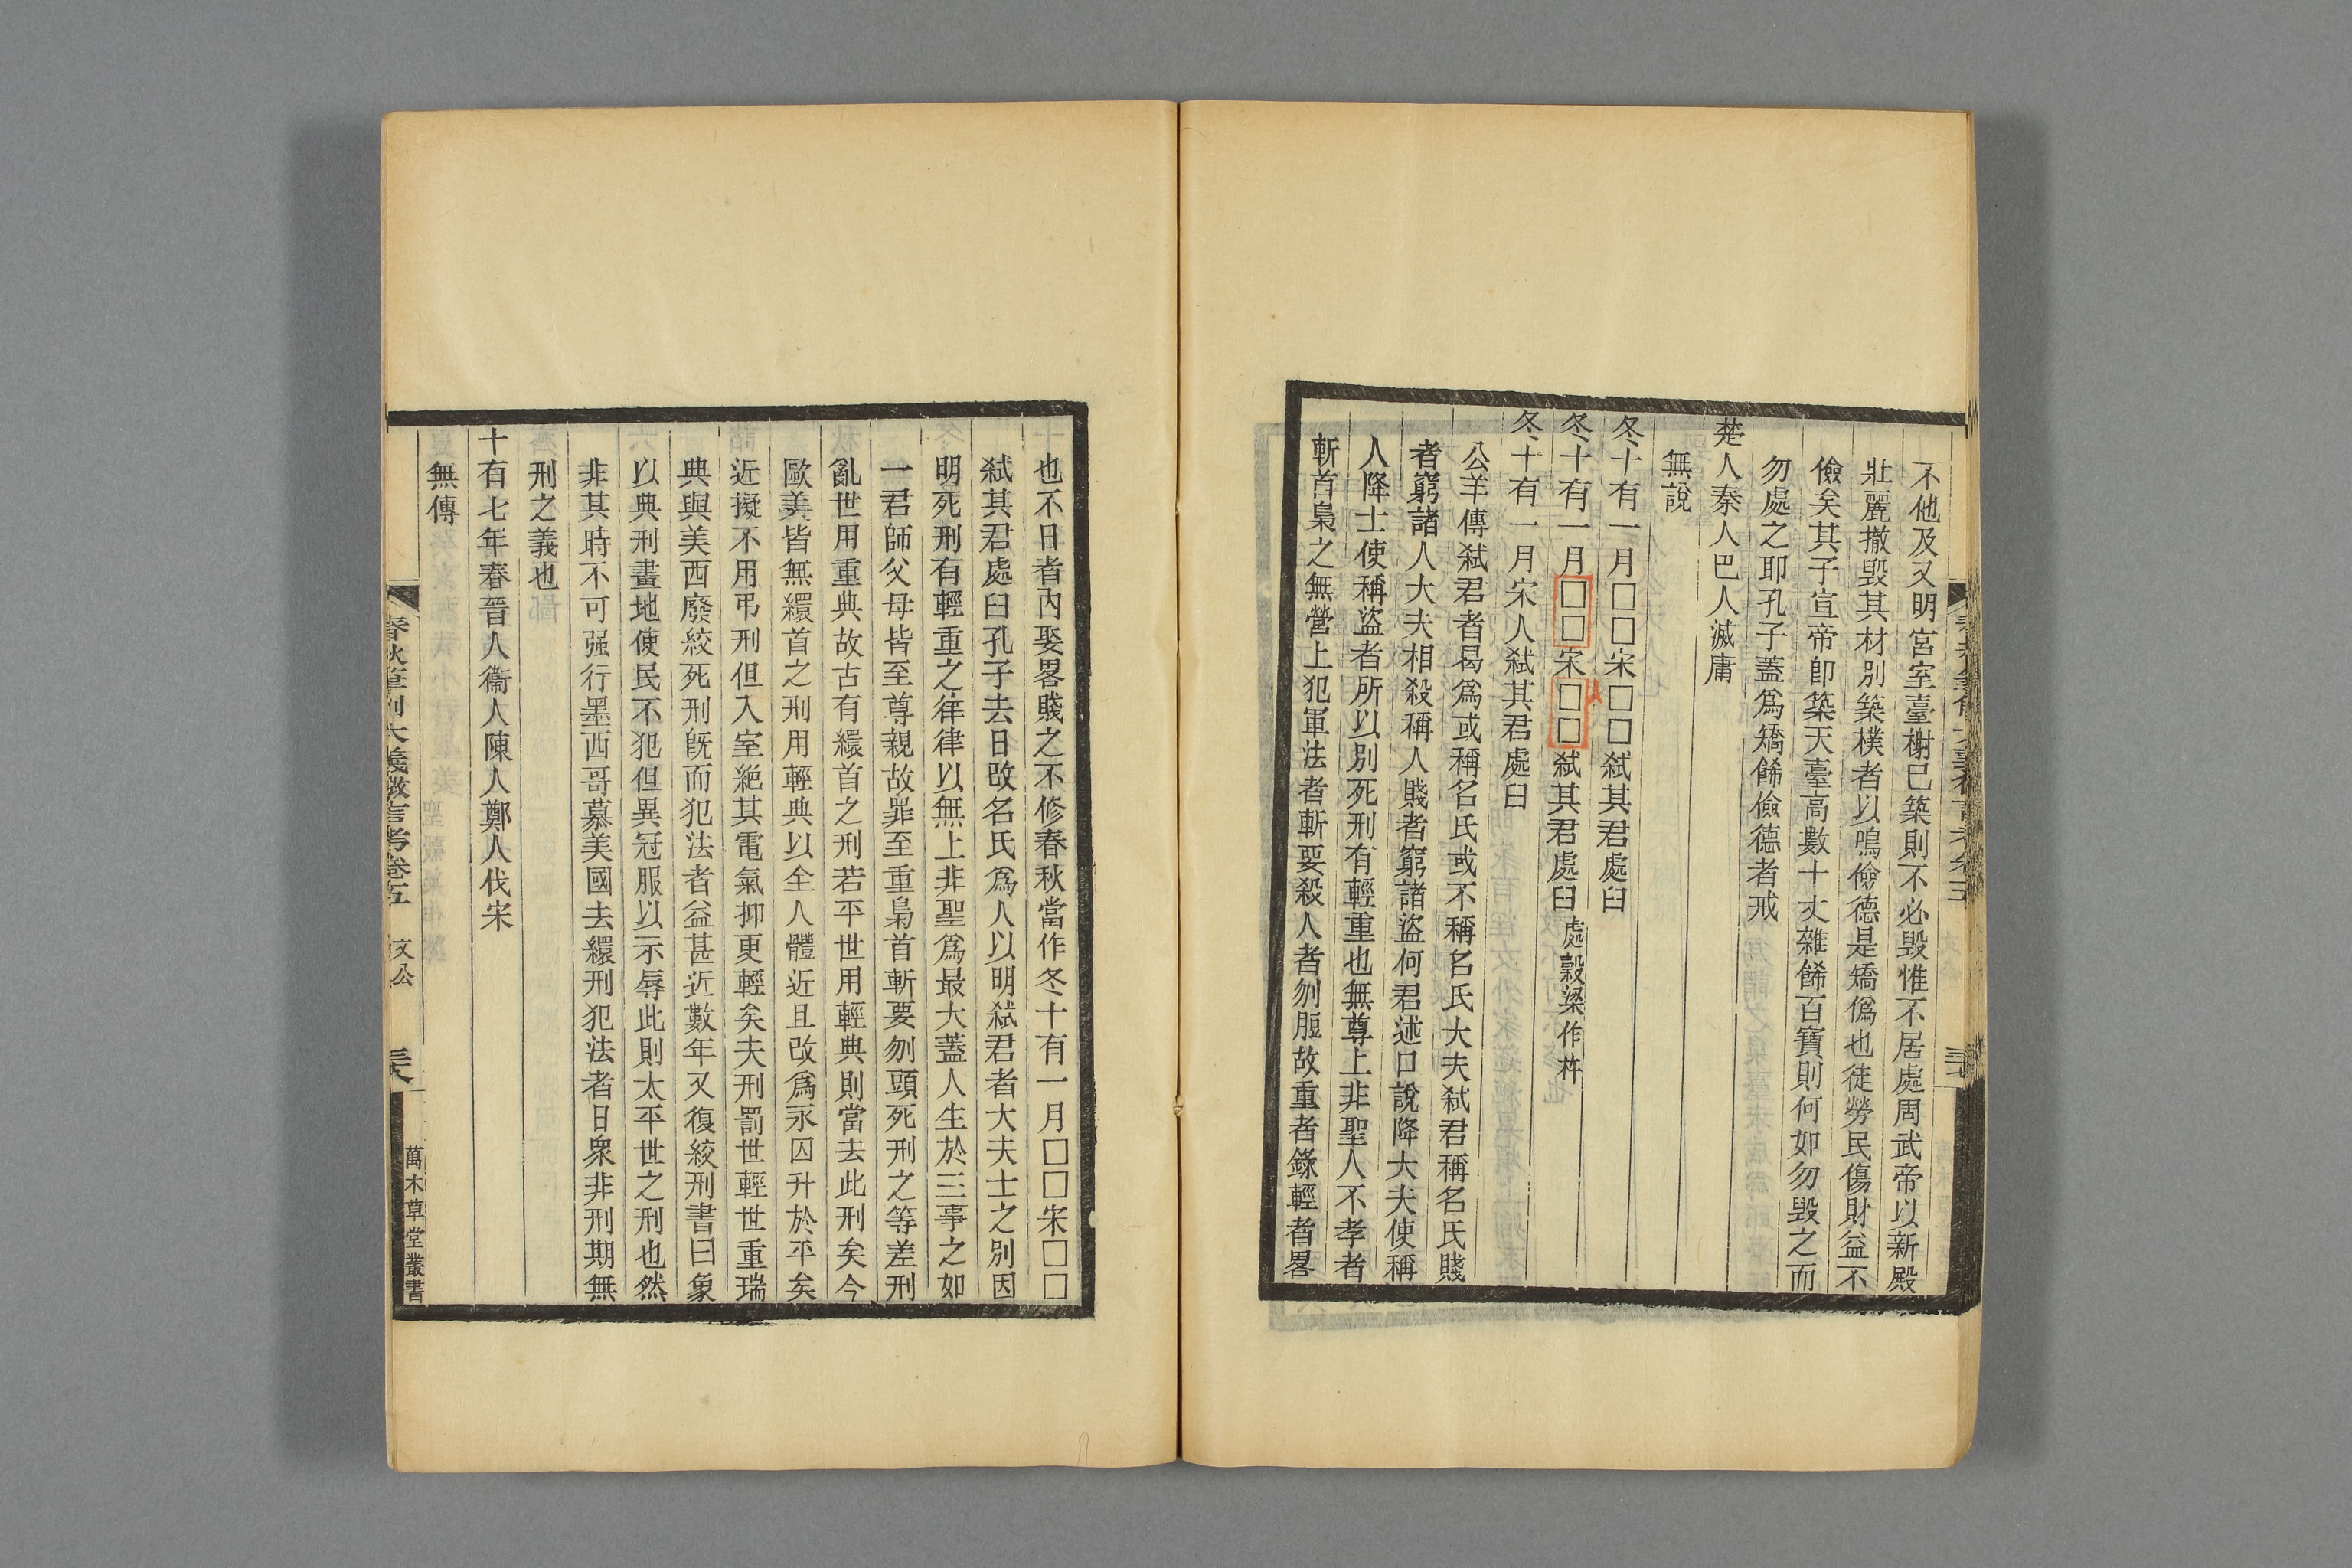 不他及又明宮室臺榭已築則不必毀惟不居處周武帝以新殿
壯麗撤毀其材別築樸者以鳴儉德是矯僞也徒勞民傷財益不
儉矣其子宣帝卽築天臺高數十丈雜餙百寶則何如勿毀之而
勿處之耶孔子蓋爲矯餙儉德者戒
楚人秦人巴人滅庸
無說
冬十有一月□□宋□□弑其君處臼
冬十有一月□□宋□□弑其君處臼處穀梁作杵
冬十有一月宋人弑其君處臼
公羊傳弑君者曷爲或稱名氏或不稱名氏大夫弑君稱名氏賤
者窮諸人大夫相殺稱人賤者窮諸盜何君述口說降大夫使稱
人降士使稱盜者所以別死刑有輕重也無尊上非聖人不孝者
斬首梟之無營上犯軍法者斬要殺人者刎脰故重者錄輕者畧
也不日者內娶畧賤之不修春秋當作冬十有一月□□宋□□
弑其君處臼孔子去日改名氏爲人以明弑君者大夫士之別因
明死刑有輕重之律律以無上非聖爲最大蓋人生於三事之如
一君師父母皆至尊親故罪至重梟首斬要刎頭死刑之等差刑
亂世用重典故古有繯首之刑若平世用輕典則當去此刑矣今
歐美皆無繯首之刑用輕典以全人體近且改爲永囚升於平矣
近擬不用弔刑但入室絕其電氣抑更輕矣夫刑罰世輕世重瑞
典與美西廢絞死刑旣而犯法者益甚近數年又復絞刑書曰象
以典刑畫地使民不犯但異冠服以示辱此則太平世之刑也然
非其時不可强行墨西哥慕美國去繯刑犯法者日衆非刑期無
刑之義也
十有七年春晉人衞人陳人鄭人伐宋
無傳
春秋筆削大義微言考卷五　文公　萬木草堂叢書